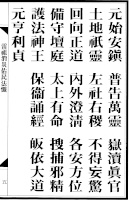 元始安鎮 普告萬靈 嶽瀆眞官
土地祇靈 左社右稷 不得妄驚
回向正道 內外澄清 各安方位
備守壇庭 太上有命 搜捕邪精
護法神王 保衞誦經 皈依大道
元亨利貞
五